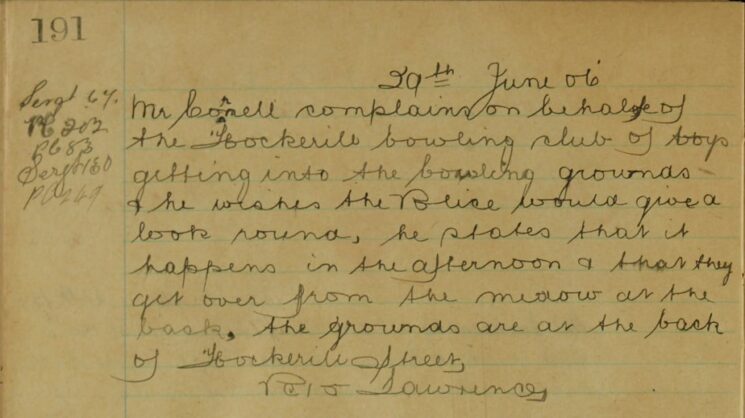 191
29th June 06
Sergt 64.
PC 202
PC 83
Sergt 130
PC 249
Mr Cornell complains on behalf of
the Hockerill bowling club of boys
getting into the bowling grounds
& he wishes the Police would give a
look round, he states that it
happens in the afternoon & that they
get over from the medow at the
back, the grounds are at the back
of Hockerill Street,
Lawrence,